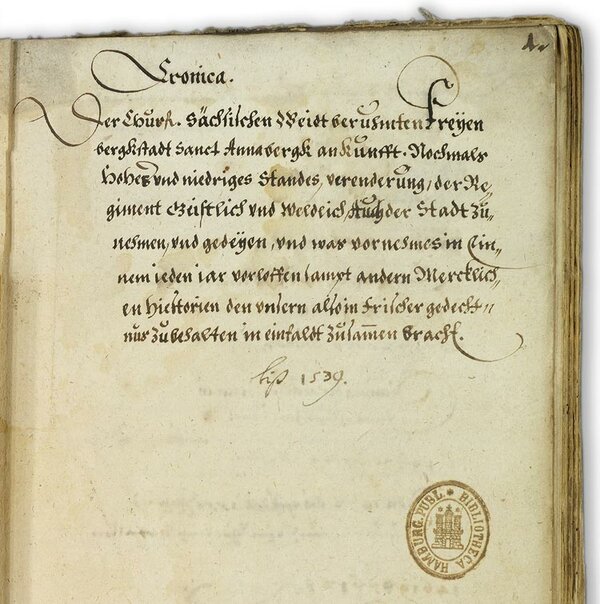 1.
Cronica.
Der Churf. Sächsischen Weidt berühmten Freyen
bergkstadt Sanct Annabergk ankunfft. Nochmals
Hohes und niedriges Standes, verenderung, der Re„
giment Geistlich und Weldlich, Auch der Stadt zu„
nehmen, und gedeyen, und was vornehmes in Ein„
nem ieden iar vorloffen sampt andern Mercklich„
en Hiestorien den unsern also in frischer gedecht„
nus zubehalten in einfaldt zusam̄en bracht.
biß 1539.
HAMBURG. PUBL. BIBLIOTHECA